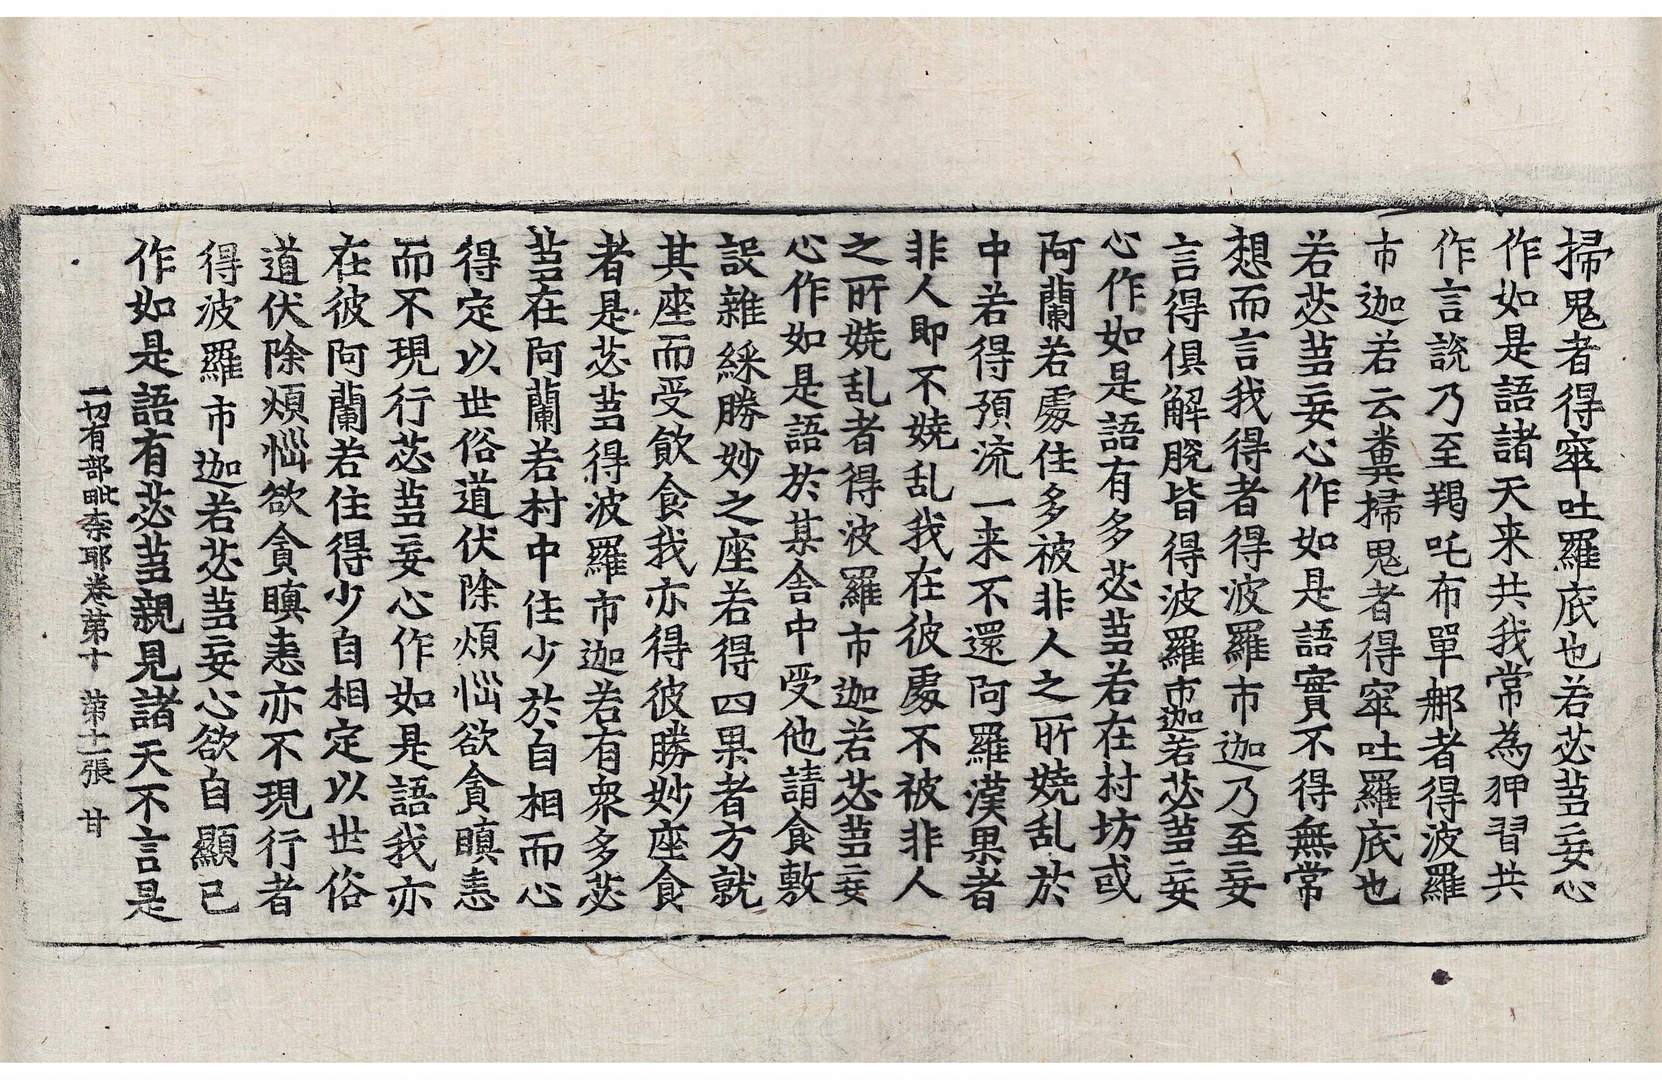 掃鬼者得窣吐羅底也若苾芻妄心
作如是語諸天来共我常為狎習共
作言說乃至羯吒布單那者得波羅
市迦若云糞掃鬼者得窣吐羅底也
若苾芻妄心作如是語實不得無常
想而言我得者得波羅市迦乃至妄
言得俱解脫皆得波羅市迦若苾芻妄
心作如是語有多苾芻若在村坊或
阿蘭若處住多被非人之所嬈乱於
中若得預流一来不還阿羅漢果者
非人即不嬈乱我在彼處不被非人
之所嬈乱者得波羅市迦若苾芻妄
心作如是語於某舍中受他請食敷
設雜綵勝妙之座若得四果者方就
其座而受飲食我亦得彼勝妙座食
者是苾芻得波羅市迦若有衆多苾
芻在阿蘭若村中住少於自相而心
得定以世俗道伏除煩惱欲貪瞋恚
而不現行苾芻妄心作如是語我亦
在彼阿蘭若住得少自相定以世俗
道伏除煩惱欲貪瞋恚亦不現行者
得波羅市迦若苾芻妄心欲自顯已
作如是語有苾芻親見諸天不言是
一切有部毗柰耶卷第十 第十一張 甘